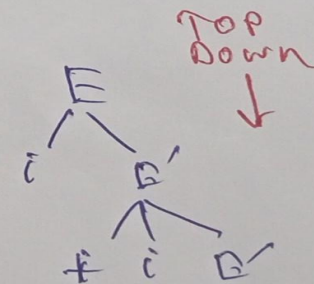 TOP
DOWN
E
i E'
+ i E'